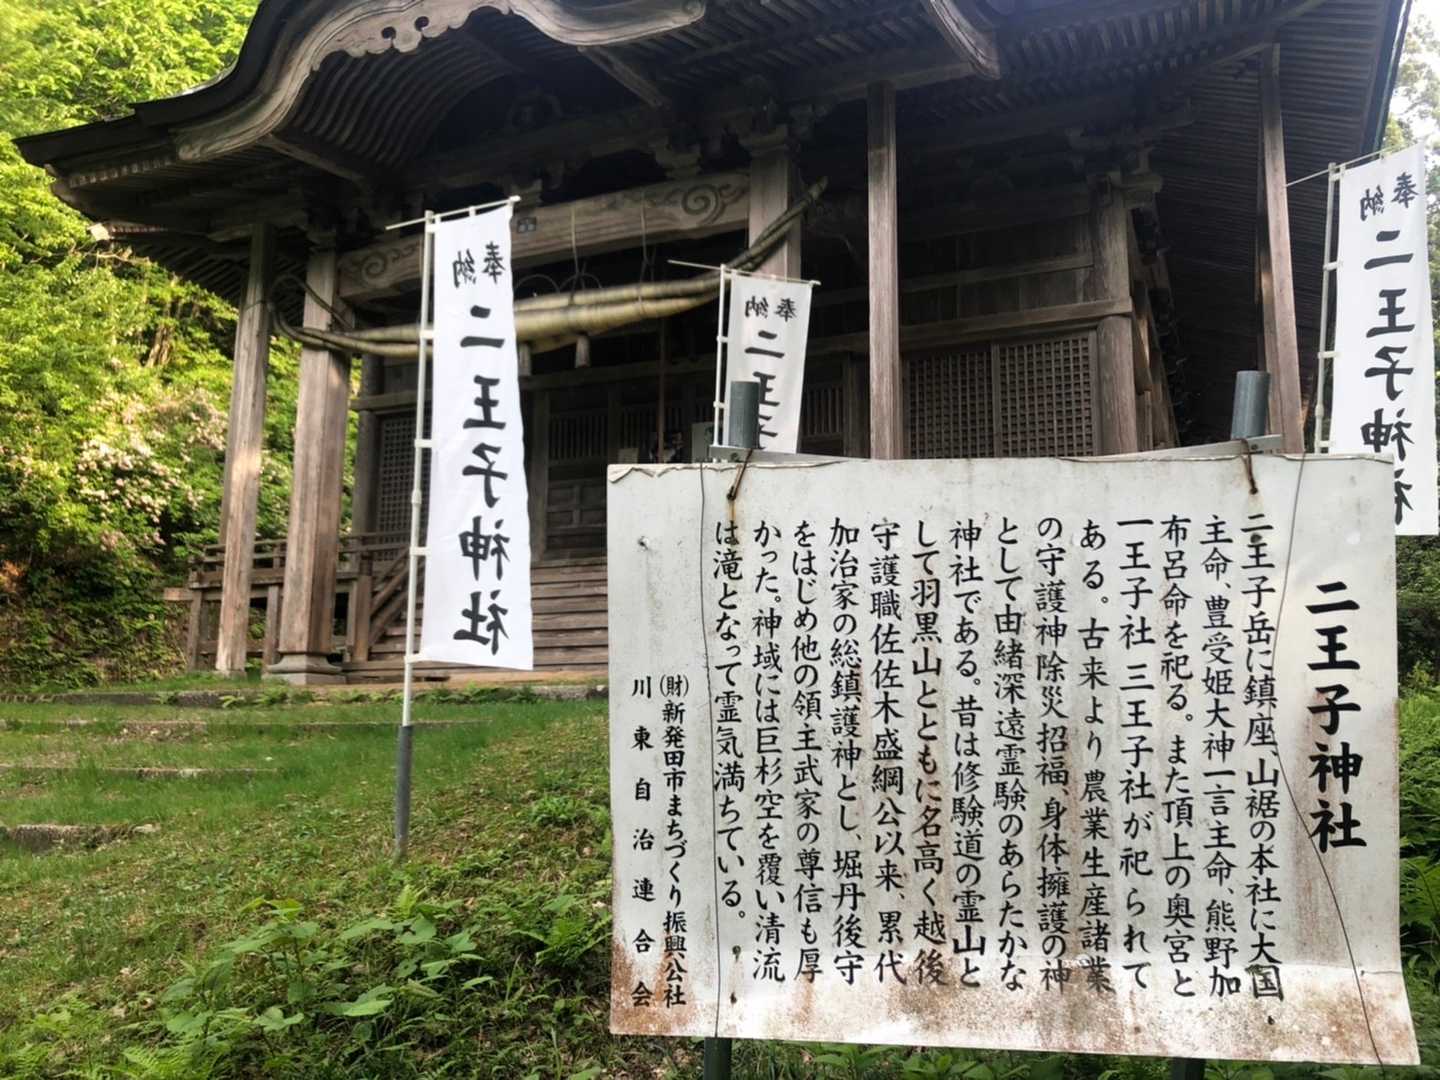 二王子神社
二王子岳に鎮座、山裾の本社に大国
主命、豊受姫大神一言主命、熊野加
布呂命を祀る。また頂上の奥宮と
一王子社 三王子社が祀られて
ある。古来より農業生産諸業
の守護神除災招福、身体擁護の神
として由緒深遠霊験のあらたかな
神社である。昔は修験道の霊山と
して羽黒山とともに名高く越後
守護職佐佐木盛綱公以来、累代
加治家の総鎮護神とし、堀丹後守
をはじめ他の領主武家の尊信も厚
かった。神域には巨杉空を覆い清流
は滝となって霊気満ちている。
(財)新発田市まちづくり振興公社
川東自治連合会
奉納 二王子神社
奉納 二王子
奉納 二王子神社